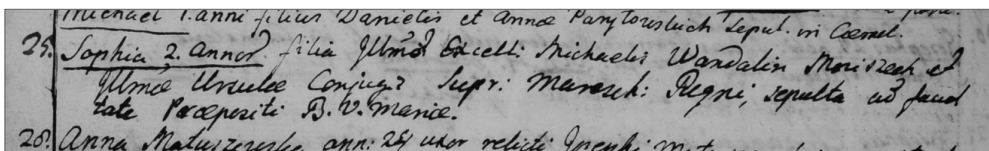 Michael 1. anni filius Danielis et Annæ Panytowskich sepul. in Cœmet.
25. Sophia 2. Annor filia Illmi Excell: Michaelis Wandalin Mniszech et
Illmæ Urculæ Conjug Supr: Maresch: Regni, sepulta ad facul
tate Præpositi B. V. Mariæ.
28. Anna Matuszewska ann: 25 uxor relicti Josephi